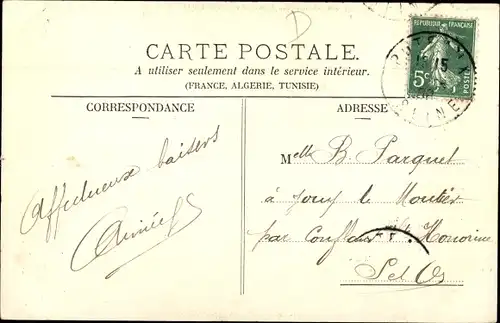 D
CARTE POSTALE.
A utiliser seulement dans le service intérieur.
(FRANCE, ALGERIE, TUNISIE)
CORRESPONDANCE
ADRESSE
REPUBLIQUE FRANÇAISE
5c
POSTES
15
SEINE
Affectueux baisers
Aimée
Melle B. Parquet
à Jouy le Moutier
par Conflans Ste Honorine
Set Os